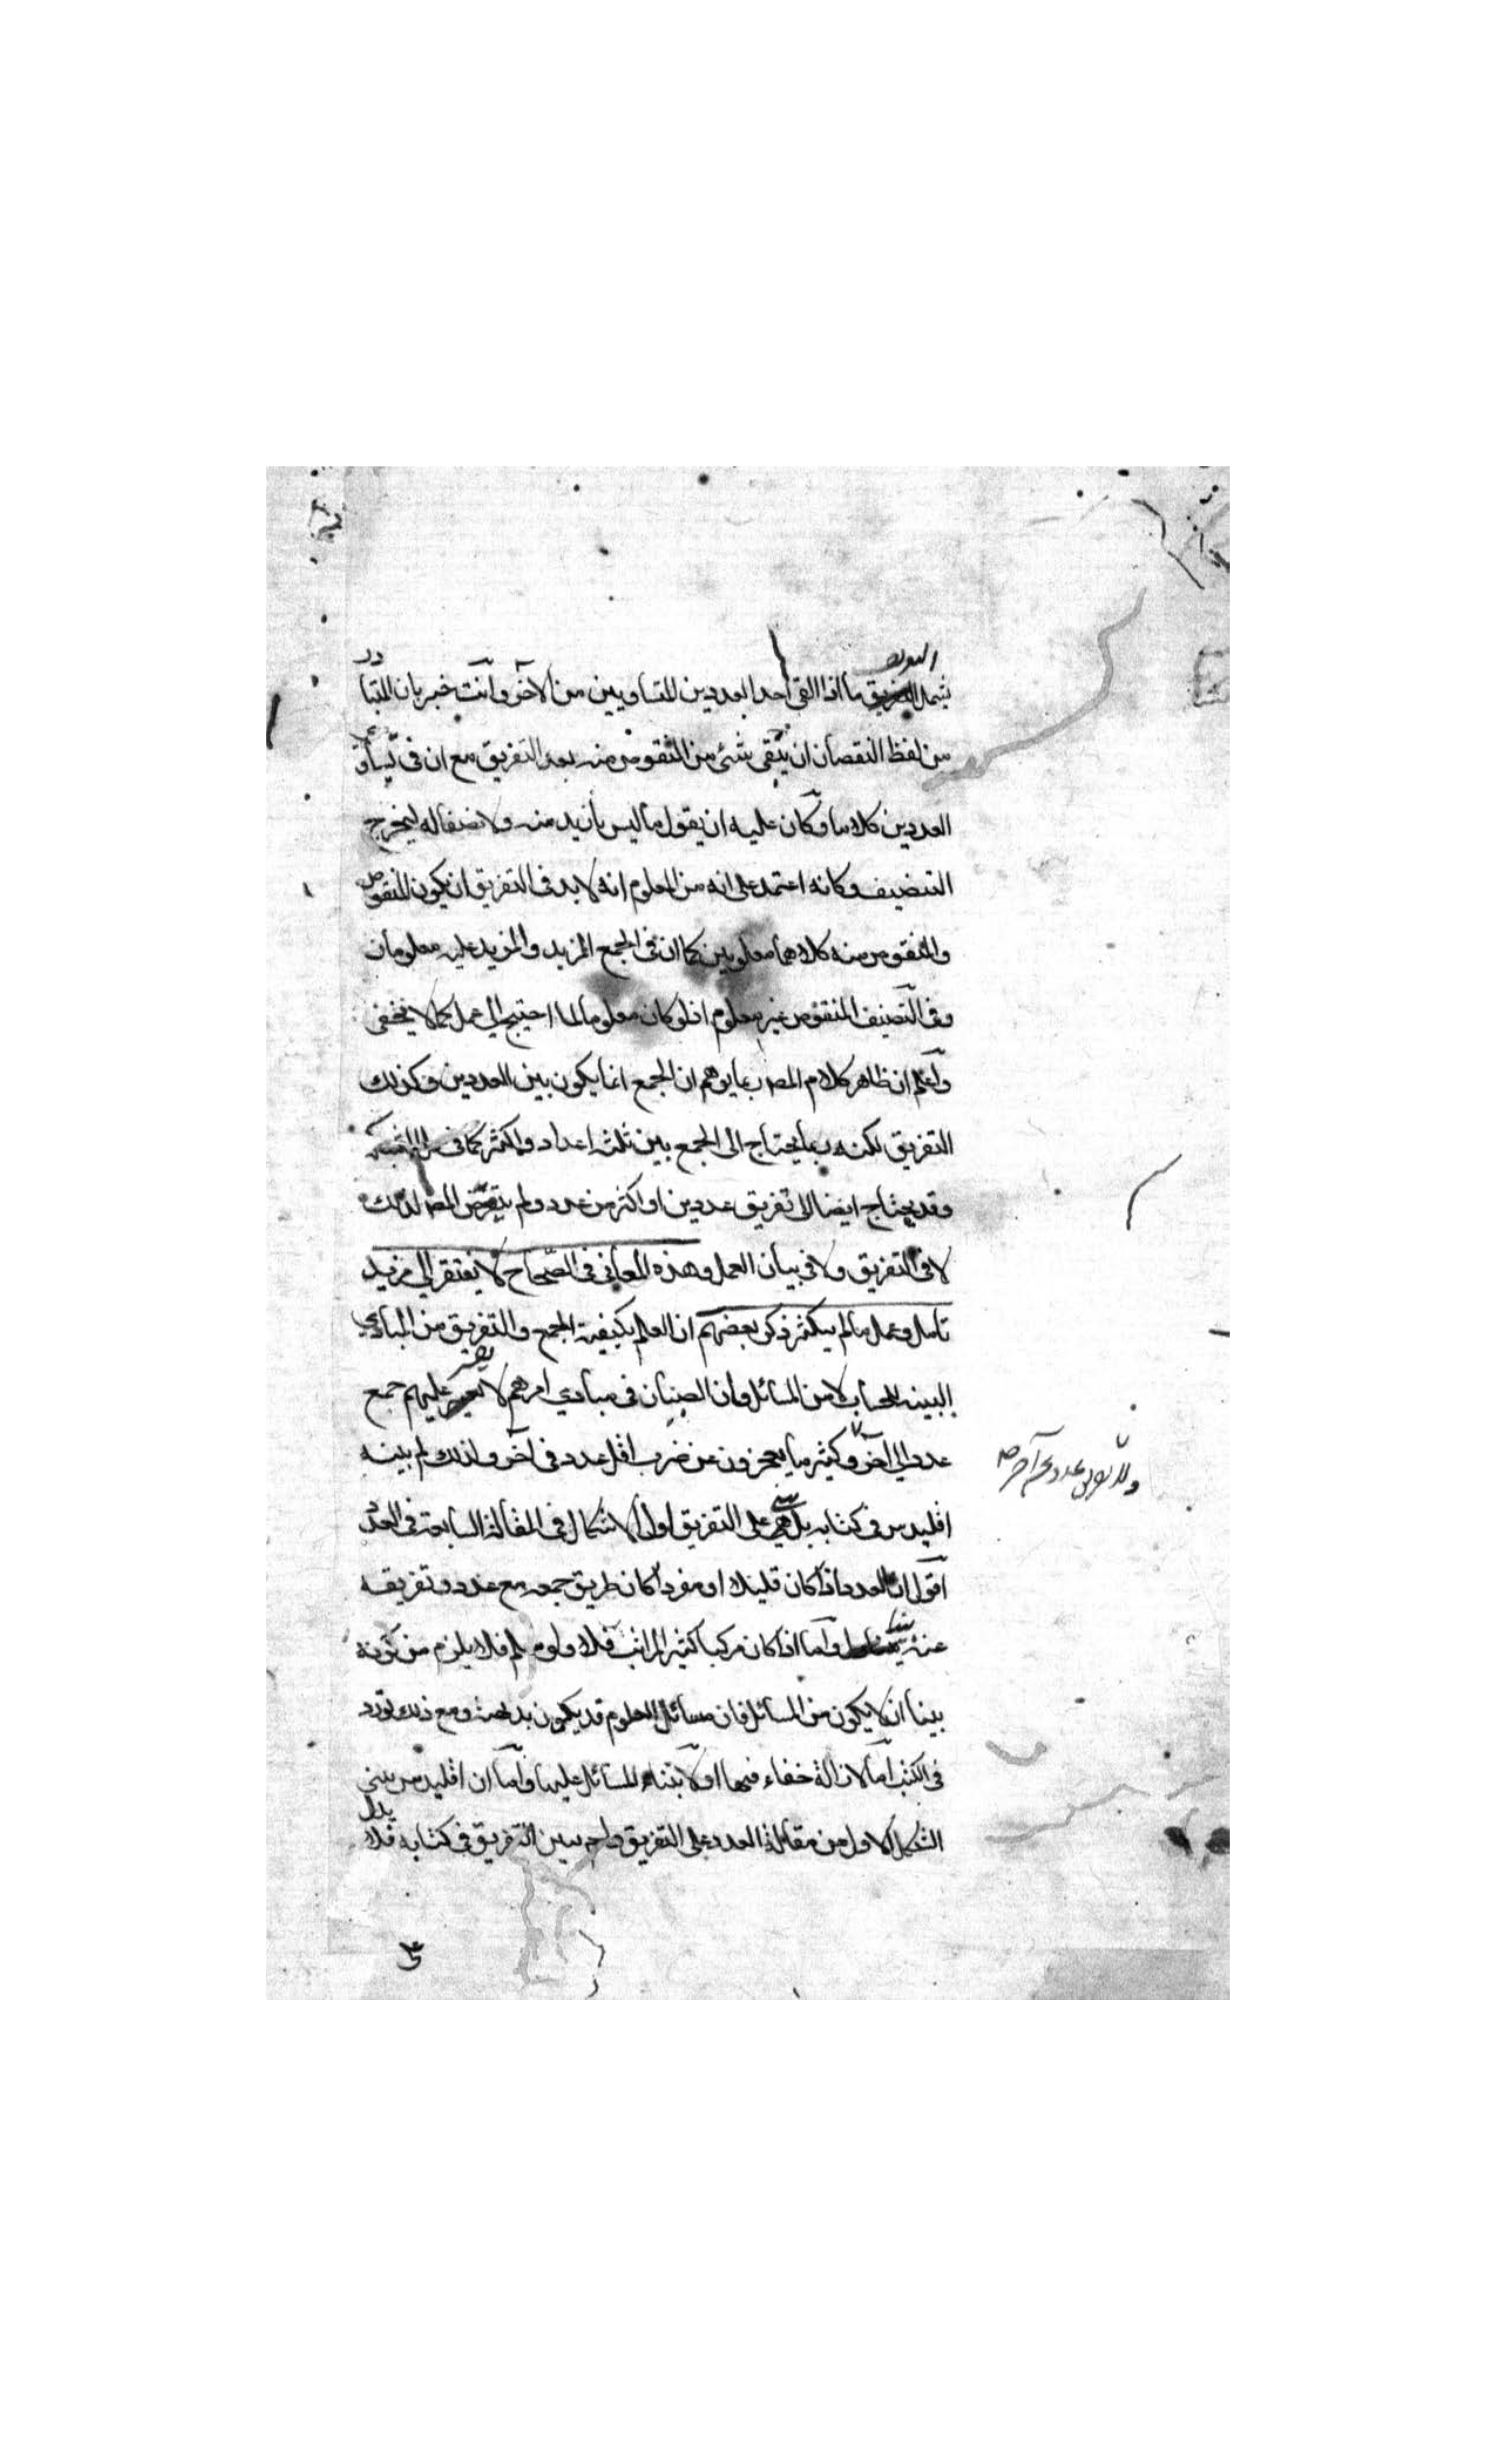 يشمل التفريق ما اذا القى احد العددين المتساويين من الآخر وانت خبير بان المتبادر
من لفظ النقصان ان يبقى شئ من المنقوص منه بعد التفريق مع ان في تساوي
العددين كلاما وكان عليه ان يقول ما ليس بازيد منه ولا نصفا له ليخرج
التنصيف وكانه اعتمد على انه من المعلوم انه لا بد في التفريق ان يكون المنقوص
والمنقوص منه كلاهما معلومين كما ان في الجمع المزيد والمزيد عليه معلومان
وفي التنصيف المنقوص غير معلوم اذ لو كان معلوما لما احتيج الى عمل كما لا يخفى
واعلم ان ظاهر كلام المصـ ربما يوهم ان الجمع انما يكون بين العددين وكذلك
التفريق لكنه ربما يحتاج الى الجمع بين ثلثة اعداد واكثر كما في
وقد يحتاج ايضا الى تفريق عددين او اكثر من عدد ولم يتعرض المصـ لذلك
لا في التفريق ولا في بيان العمل وهذه المعاني في الصحاح لا يفتقر الى مزيد
تامل وعمل ما لم يتكثر ذكر بعضهم ان العلم بكيفية الجمع والتفريق من المبادي
البينة للحساب لا من المسائل فان الصبيان في مبادي امرهم لا يعسر عليهم جمع
عدد الى آخر وكثيرا ما يعجزون عن ضرب اقل عدد في آخر ولذلك لم يبينه
ولا تفريق عدد من آخر صح
اقليدس في كتابه بل بنى على التفريق اول الاشكال في المقالة السابعة في العدد
اقول ان العدد اذا كان قليلا او مفردا كان طريق جمعه مع عدد وتفريقه
عنه بينا واما اذا كان مركبا كثير المراتب فلا ولو سلم فلا يلزم من كونه
بينا ان لا يكون من المسائل فان مسائل العلوم قد يكون بديهية ومع ذلك تورد
في الكتب اما لازالة خفاء فيها او لابتناء المسائل عليها واما ان اقليدس بنى
الشكل الاول من مقالة العدد على التفريق ولم يبين التفريق في كتابه فلا يدل
على